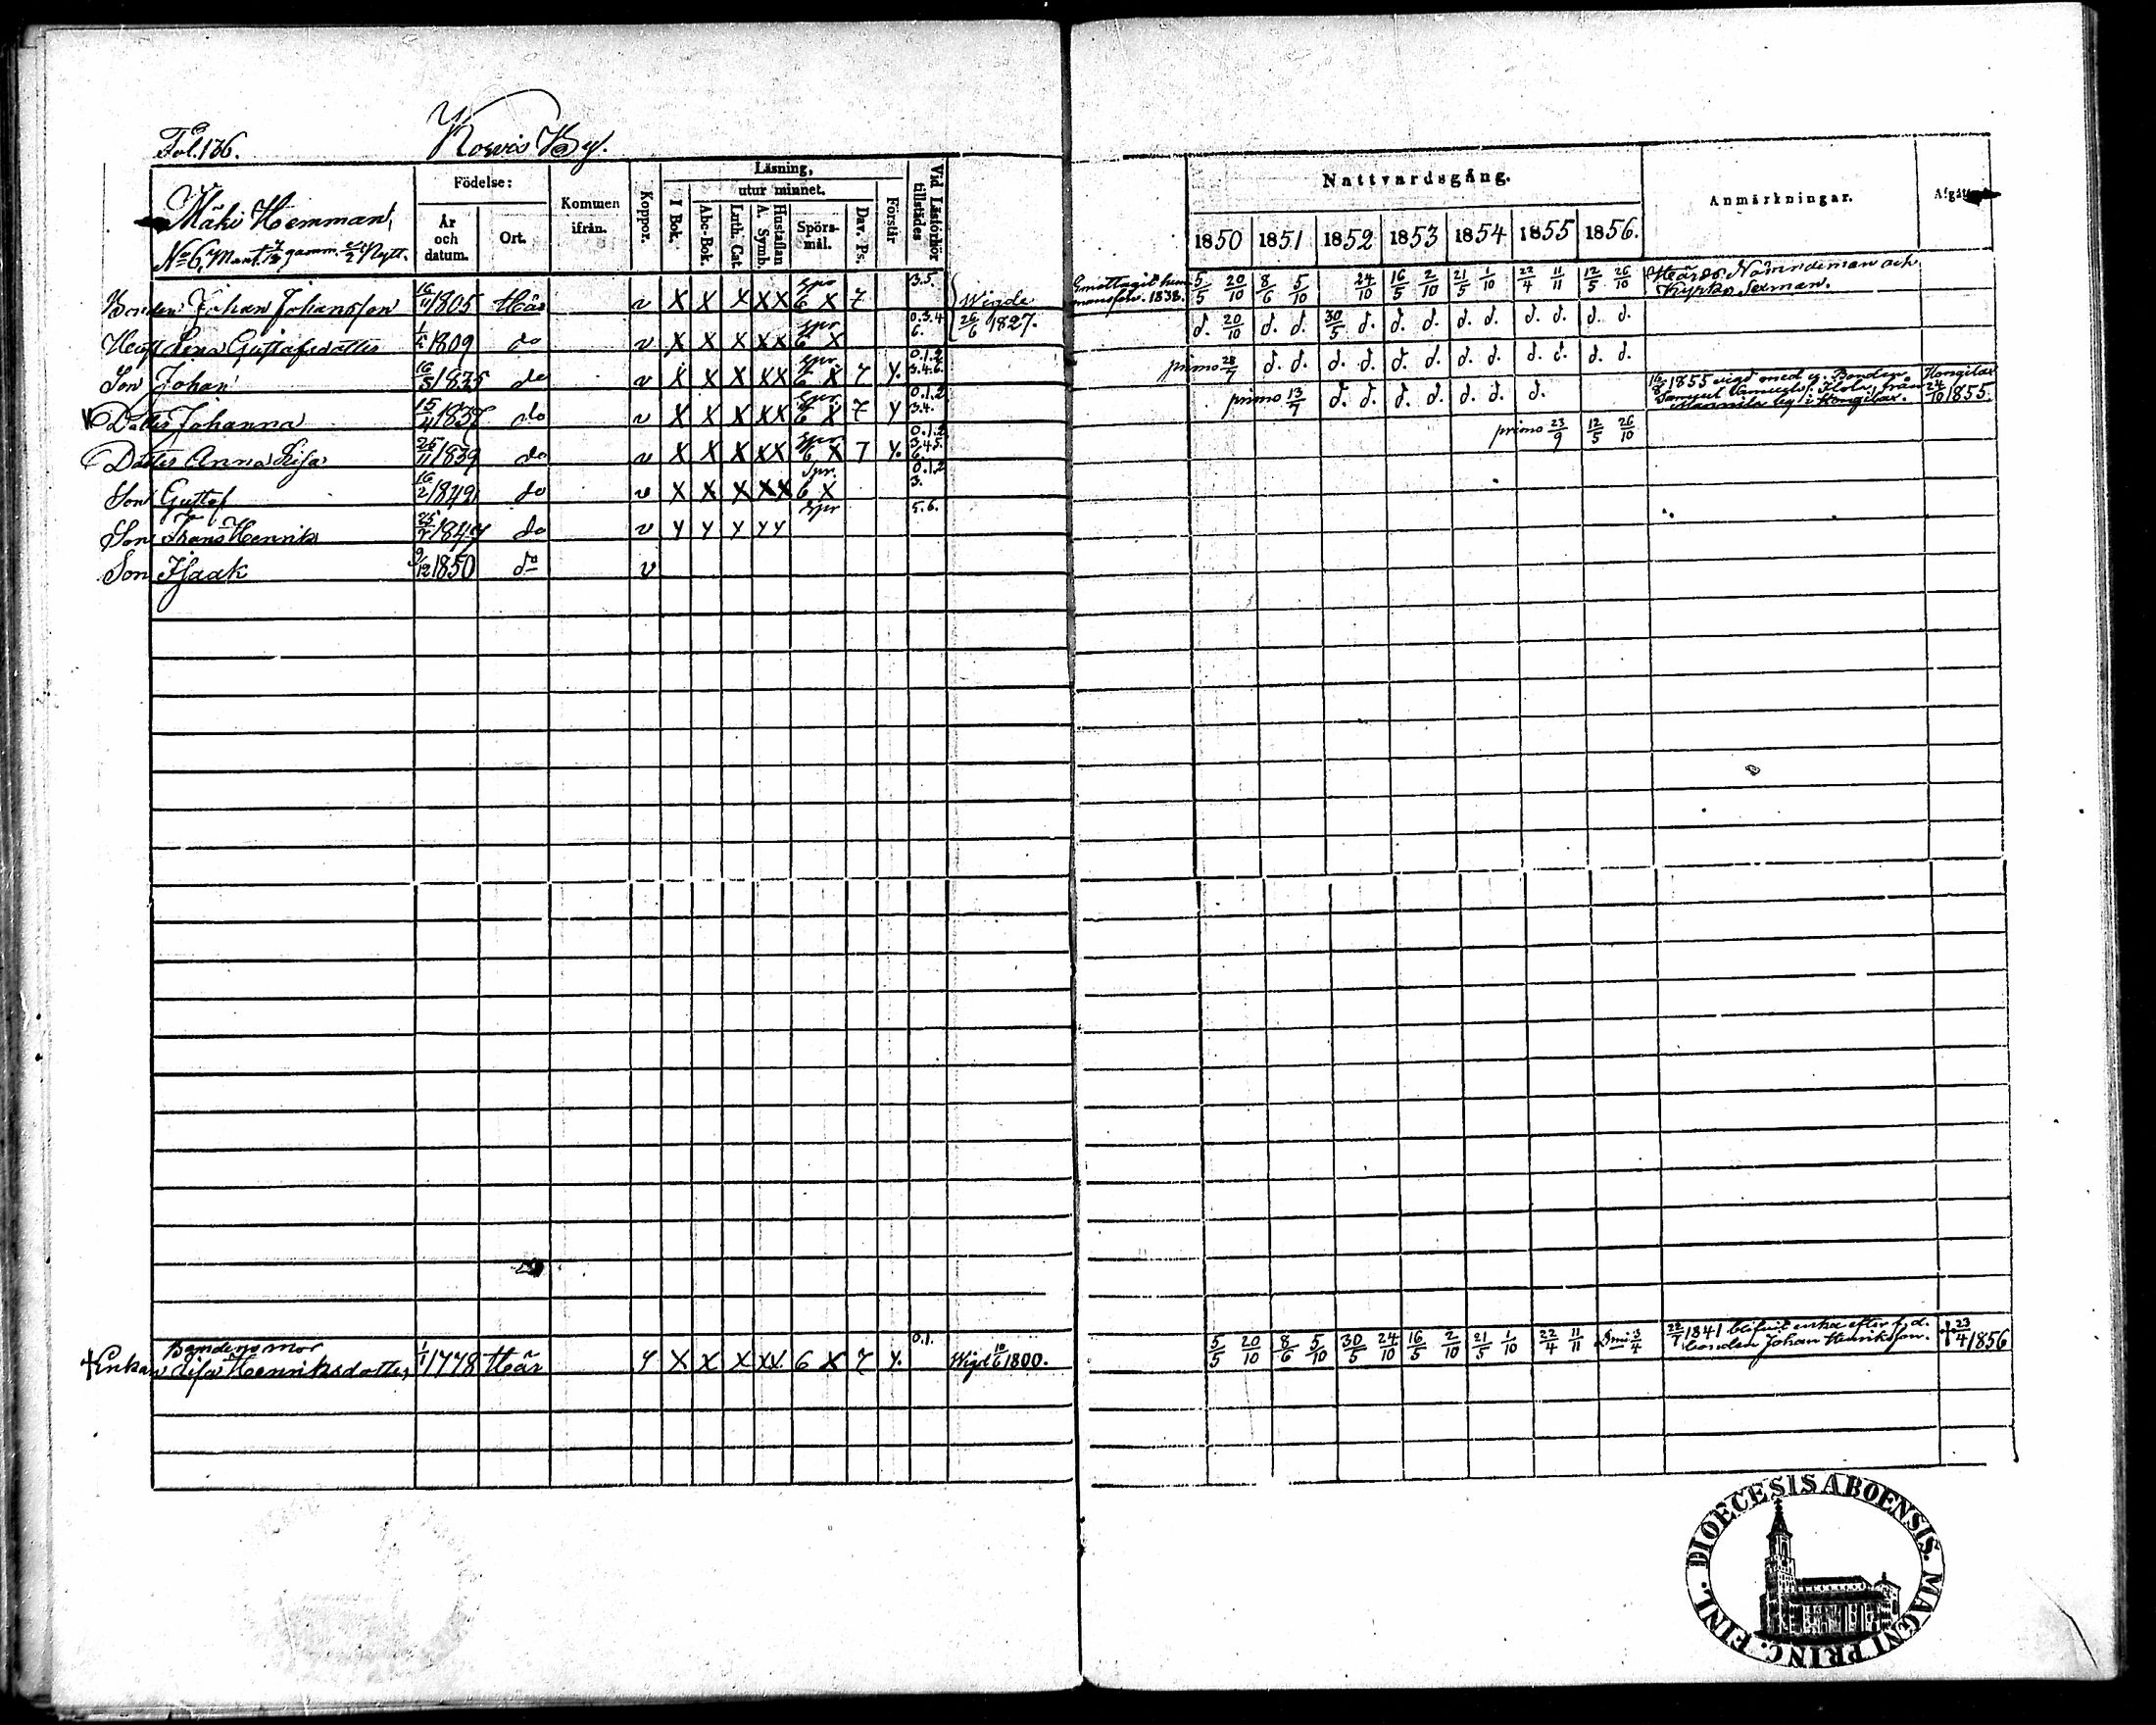 Fol. 136.
By.
Mäki Hemman,
No 6, Mant. gamm. Nytt.
Födelse:
År och datum.
Ort.
Kommen ifrån.
Koppor.
Läsning,
utur minnet.
I Bok.
Abc-Bok.
Luth. Cat.
A. Symb. Hustaflan
Spörs-mål.
Dav. Ps.
Förstår
Vid Läsförhör tillstädes
Nattvardsgång.
1850 1851 1852 1853 1854 1855 1856.
Anmärkningar.
Bonden Johan Johansson 16/11 1805 Här v X X X XX Spr 6 X 7 3.5. Wigde 26/6 1827. Emottagit hem. 1838. 5/5 20/10 8/6 5/10 24/10 16/5 2/10 21/5 1/10 22/4 11/11 12/5 26/10 Härads Nämndeman och Kyrko Sexman.
Hust Lena Gustafsdotter 1/4 1809 do v X X X XX spr 6 X 0.3.4 6. d. 20/10 d. d. 30/5 d. d. d. d. d. d. d. d. d.
Son Johan 16/5 1835 do v X X X XX spr 6 X 7 Y. 0.1.2 3.4.6. primo 28/7 d. d. d. d. d. d. d. d. d. d. d. d.
Dotter Johanna 15/4 1837 do v X X X XX spr. 6 X 7 Y 0.1.2 3.4. primo 13/7 d. d. d. d. d. d. d. 1855 vigd med Bonden Samuel från by i Hongilax. Hongilax 24/10 1855.
Dotter Anna Lisa 25/11 1839 do v X X X XX spr 6 X 7 Y. 0.1.2 3.4.5. 6. primo 23/9 12/5 26/10
Son Gustaf 16/2 1842 do v X X X XX Spr. 6 X 0.1.2 3.
Son Frans Henrik 1847 do v Y Y Y YY spr 5.6.
Son Isaak 9/12 1850 do v
Bondens mor
†Enkan Lisa Henriksdotter, 1/1 1778 Här Y X X X XX. 6 X 7 Y. 0.1. Wigd 10/6 1800. 5/5 20/10 8/6 5/10 30/5 24/10 16/5 2/10 21/5 1/10 22/4 11/11 3/4 22/7 1841 blifvit enka efter f.d. bonden Johan Henriksson. † 23/4 1856
DIOECESIS ABOENSIS. MAGNI PRINC. FINL.